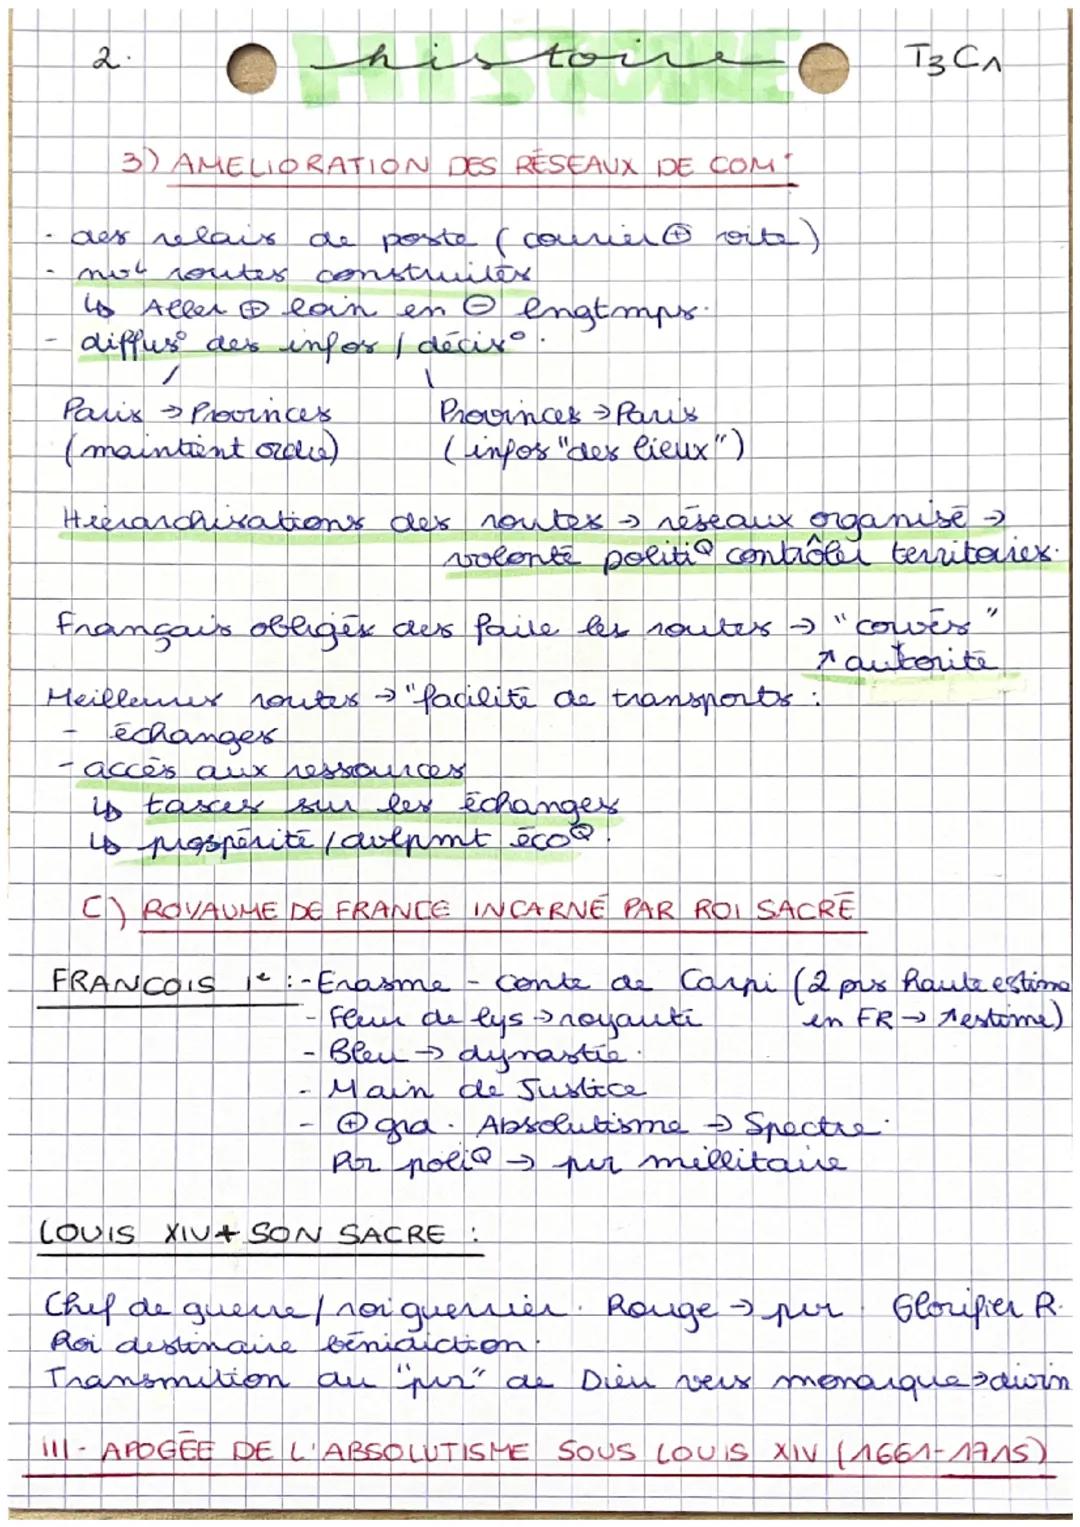 2. histoire T3 C1
HISTOIRE
3) AMELIORATION DES RÉSEAUX DE COM°:
- des relais de poste (courrier ⊕ vite)
- routes construites
↳ Aller ⊕ loin en ⊖ lngtmps.
- diffus° des infos / décis°.
Paris → Provinces Provinces → Paris
(maintient ordre) (infos "des lieux")
Hiérarchisations des routes → réseaux organisé →
volonté politiQ contrôler territoires.
Français obligés des faire les routes → "corvés"
↗ autorité
Meilleures routes → "facilité de transports :
- échanges
- accès aux ressources
↳ taxes sur les échanges
↳ prospérité / dvlpmt écoQ.
C) ROYAUME DE FRANCE INCARNÉ PAR ROI SACRÉ
FRANCOIS 1e : - Erasme - conte de Carpi (2 prs haute estime
- Fleur de lys → royauté en FR → ↗estime)
- Bleu → dynastie.
- Main de Justice
- ⊕ gra. Absolutisme → Spectre.
Pvr poliQ → pvr millitaire
LOUIS XIV + SON SACRE :
Chef de guerre / roi guerrier. Rouge → pvr. Glorifier R.
Roi destinaire bénidiction.
Transmition du "pvr" de Dieu vers monarque → divin
III - APOGÉE DE L'ABSOLUTISME SOUS LOUIS XIV (1661-1715)